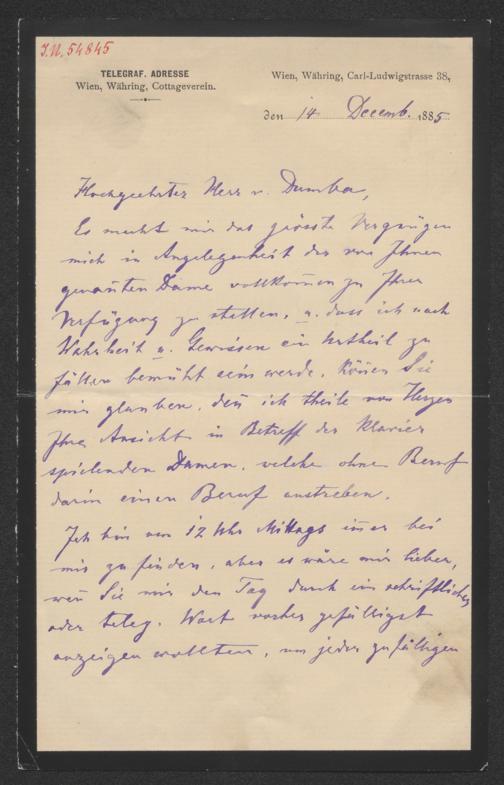 I.N. 54845
TELEGRAF. ADRESSE
Wien, Währing, Cottageverein.
Wien, Währing, Carl-Ludwigstrasse 38,
den 14 Decemb. 1885.
Hochgeehrter Herr v. Dumba,
Es macht mir das grösste Vergnügen
mich in Angelegenheit der von Ihnen
genan̄ten Dame vollkom̄en zu Ihrer
Verfügung zu stellen, u. dass ich nach
Wahrheit u. Gewissen ein Urtheil zu
fällen bemüht sein werde, kön̄en Sie
mir glauben, den̄ ich theile von Herzen
Ihre Ansicht in Betreff der Klavier
spielenden Damen, welche ohne Beruf
darin einen Beruf anstreben.
Ich bin um 12 Uhr Mittags im̄er bei
mir zu finden, aber es wäre mir lieber,
wen̄ Sie mir den Tag durch ein schriftliches
oder teleg. Wort vorher gefälligst
anzeigen wollten, um jeder zufälligen